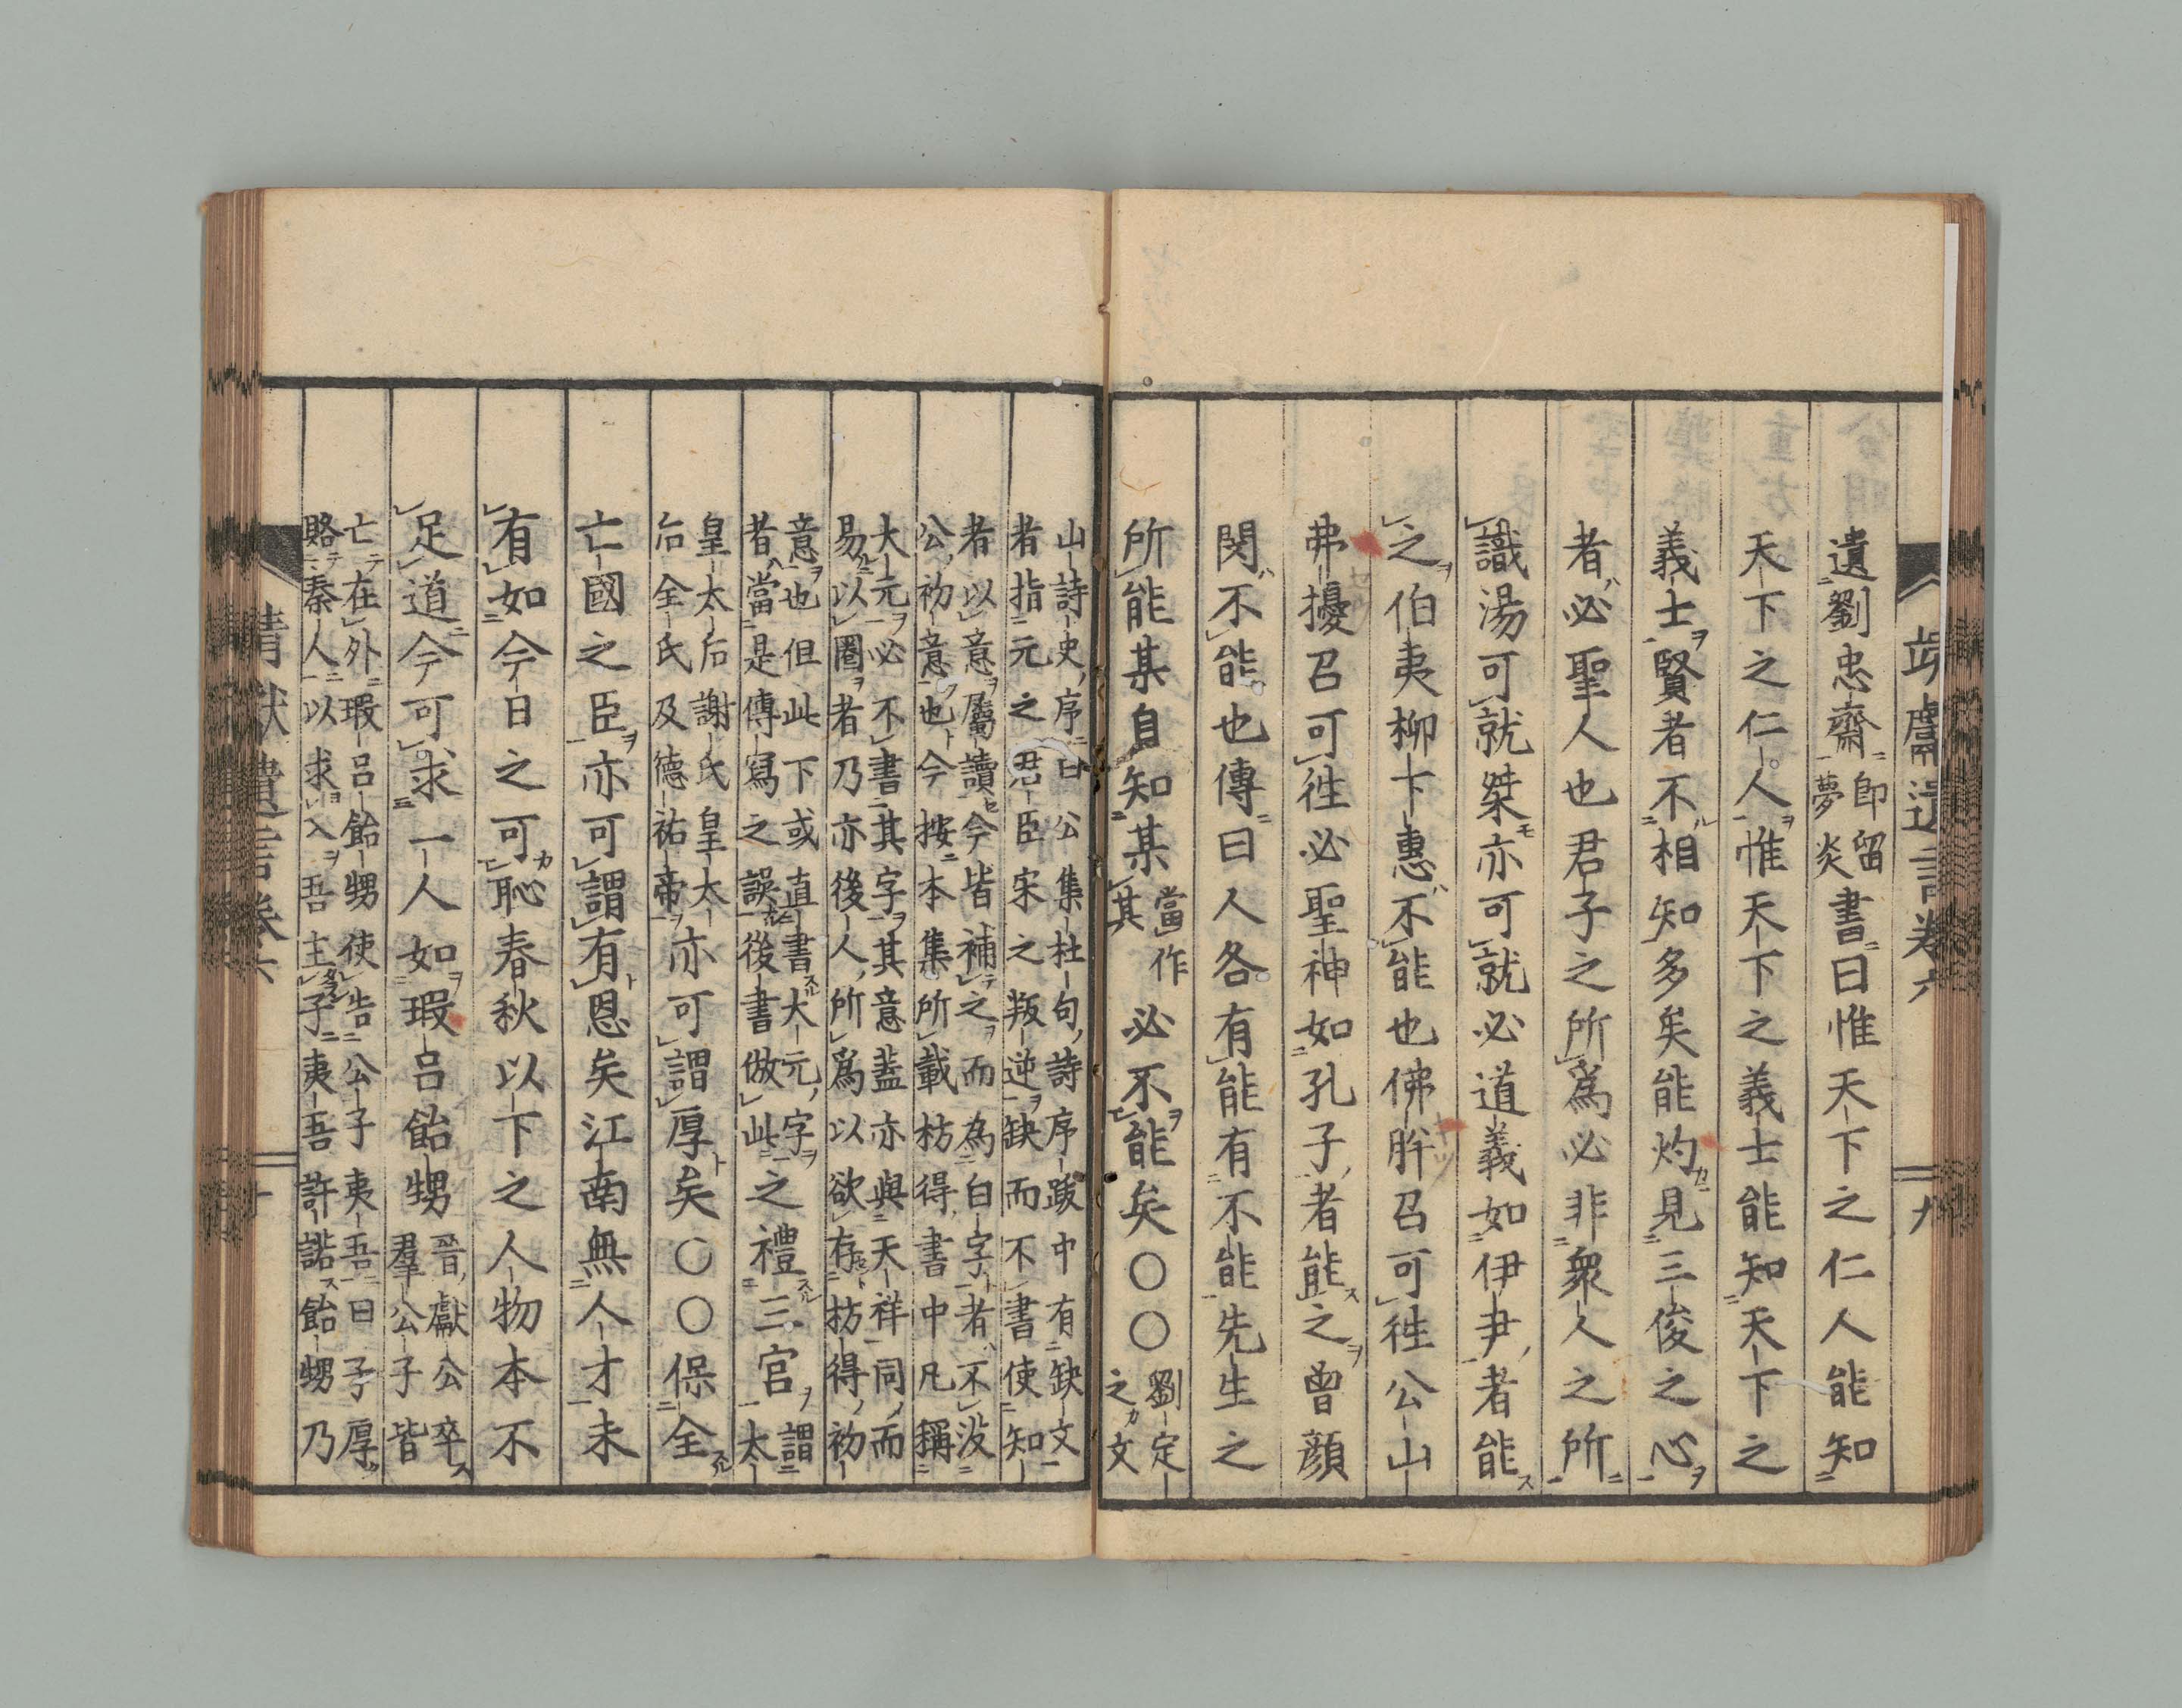 遺劉忠齋即留夢炎書曰惟天下之仁人能知
天下之仁人惟天下之義士能知天下之
義士賢者不相知多矣能灼見三俊之心
者必聖人也君子之所爲必非衆人之所
識湯可就桀亦可就必道義如伊尹者能
之伯夷柳下惠不能也佛肸召可徃公山
弗擾召可徃必聖神如孔子者能之曾顔
閔不能也傳曰人各有能有不能先生之
所能某自知某當作其必不能矣○○劉定之文
山詩史序曰公集杜句詩序跋中有缺文
者指元之君臣宋之叛逆缺而不書使知
者以意屬讀今皆補之而為白字者不没
公初意也今按本集所載枋得書中凡稱
大元必不書其字其意蓋亦與天祥同而
易以圈者乃亦後人所爲以欲存枋得初
意也但此下或直書大元字謂
者當是傳寫之誤後書倣此之禮三官太
皇太后謝氏皇太
后全氏及德祐帝亦可謂厚矣○○保全
亡國之臣亦可謂有恩矣江南無人才未
有如今日之可恥春秋以下之人物本不
足道今可求一人如瑕呂飴甥晉獻公卒羣公子皆
亡在外瑕呂飴甥使告公子夷吾曰子厚
賂秦人以求入吾主子夷吾許諾飴甥乃